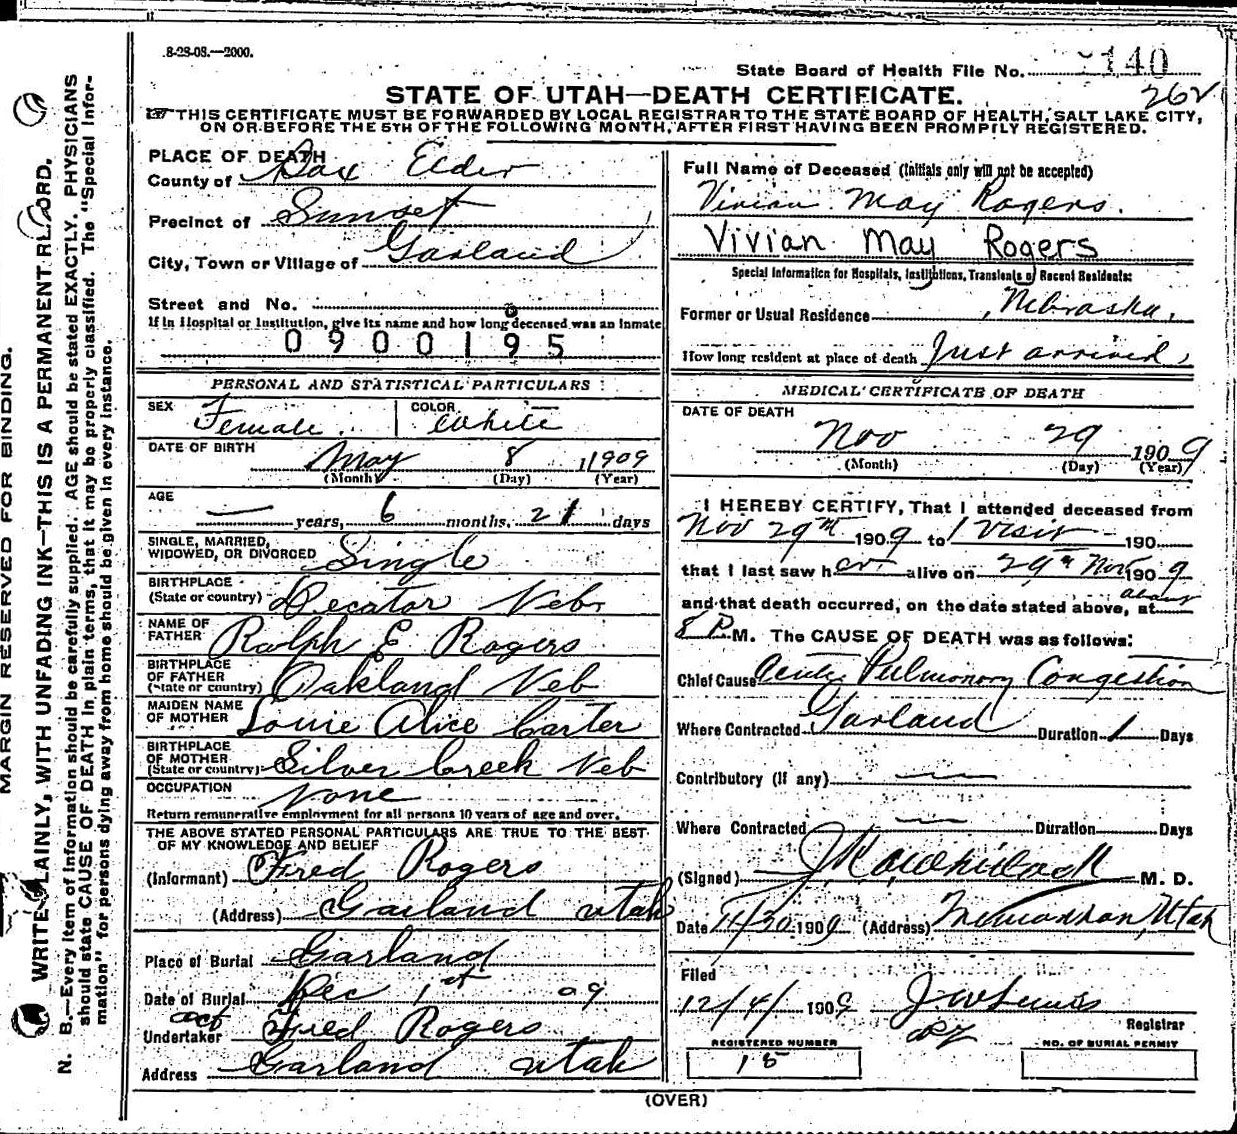 8-28-08.—2000.
State Board of Health File No. 140
262
STATE OF UTAH—DEATH CERTIFICATE.
THIS CERTIFICATE MUST BE FORWARDED BY LOCAL REGISTRAR TO THE STATE BOARD OF HEALTH, SALT LAKE CITY,
ON OR BEFORE THE 5TH OF THE FOLLOWING MONTH, AFTER FIRST HAVING BEEN PROMPTLY REGISTERED.
PLACE OF DEATH
County of Box Elder
Precinct of Sunset
City, Town or Village of Garland
Street and No.
If in Hospital or Institution, give its name and how long deceased was an inmate
0900195
PERSONAL AND STATISTICAL PARTICULARS
SEX Female COLOR White
DATE OF BIRTH May 8 1909
(Month) (Day) (Year)
AGE
— years, 6 months, 21 days
SINGLE, MARRIED,
WIDOWED, OR DIVORCED Single
BIRTHPLACE
(State or country) Decator Neb.
NAME OF
FATHER Ralph E Rogers
BIRTHPLACE
OF FATHER
(State or country) Oakland Neb
MAIDEN NAME
OF MOTHER Louie Alice Carter
BIRTHPLACE
OF MOTHER
(State or country) Silver Creek Neb
OCCUPATION None
Return remunerative employment for all persons 10 years of age and over.
THE ABOVE STATED PERSONAL PARTICULARS ARE TRUE TO THE BEST
OF MY KNOWLEDGE AND BELIEF
(Informant) Fred Rogers
(Address) Garland Utah
Place of Burial Garland
Date of Burial Dec 1st 09
act
Undertaker Fred Rogers
Address Garland Utah
Full Name of Deceased (Initials only will not be accepted)
Vivian May Rogers.
Vivian May Rogers
Special Information for Hospitals, Institutions, Transients or Recent Residents:
Former or Usual Residence Nebraska,
How long resident at place of death Just arrived
MEDICAL CERTIFICATE OF DEATH
DATE OF DEATH
Nov 29 1909
(Month) (Day) (Year)
I HEREBY CERTIFY, That I attended deceased from
Nov 29th 1909 to 1 Visit 190
that I last saw her alive on 29th Nov 1909
about
and that death occurred, on the date stated above, at
8 P. M. The CAUSE OF DEATH was as follows:
Chief Cause Acute Pulmonary Congestion
Where Contracted Garland Duration 1 Days
Contributory (if any) —
Where Contracted — Duration Days
(Signed) M. D.
Date 11/30 1909 (Address) Utah
Filed
12/4/1909
Registrar
REGISTERED NUMBER
15
NO. OF BURIAL PERMIT
(OVER)
MARGIN RESERVED FOR BINDING.
WRITE PLAINLY, WITH UNFADING INK—THIS IS A PERMANENT RECORD.
N. B.—Every item of information should be carefully supplied. AGE should be stated EXACTLY. PHYSICIANS
should state CAUSE OF DEATH in plain terms, that it may be properly classified. The "Special Infor-
mation" for persons dying away from home should be given in every instance.